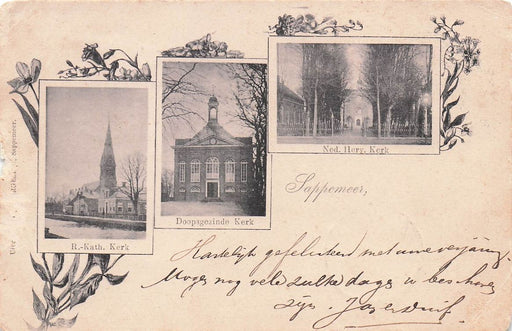 Ned. Herv. Kerk
Doopsgezinde Kerk
R.-Kath. Kerk
Sappemeer,
Hartelijk gefeliciteerd met uwe verjaring.
Moge nog vele zulke dagen u beschoren
zijn.